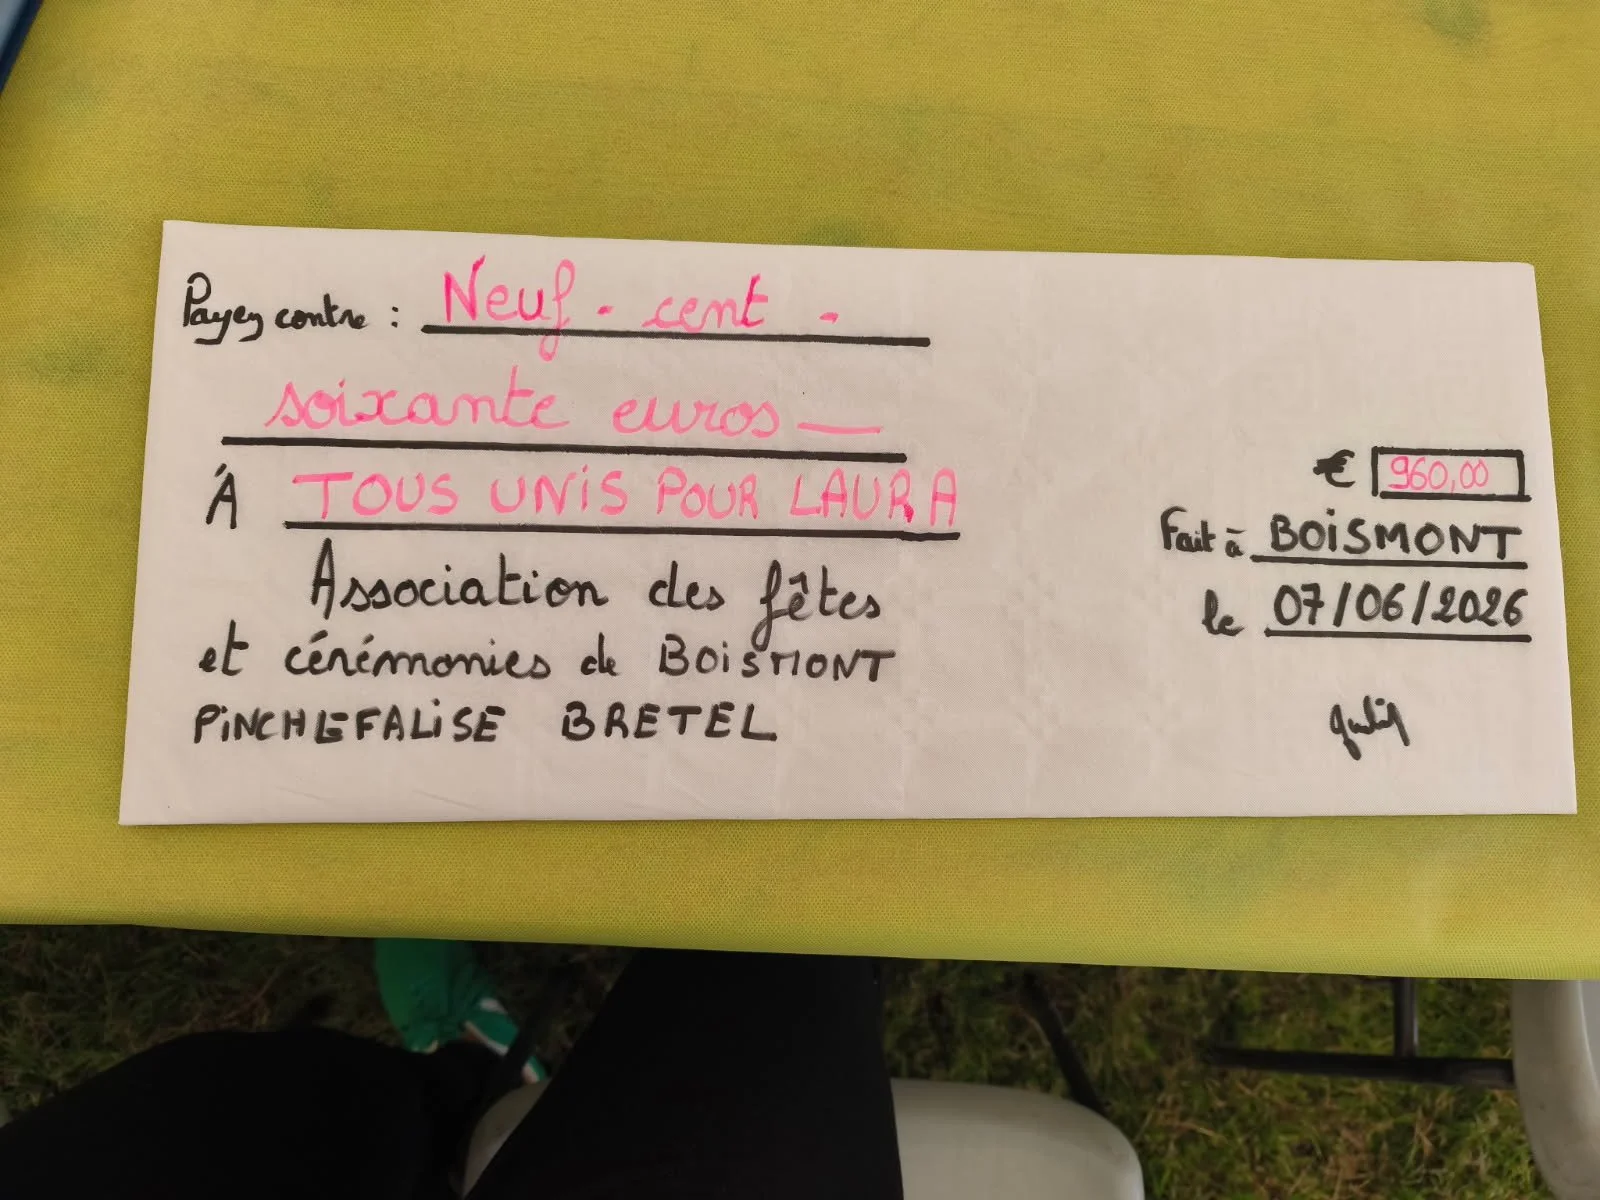 Payez contre : Neuf - cent -
soixante euros —
À TOUS UNiS POUR LAURA
Association des fêtes
et cérémonies de BOiSMONT
PiNCHLEFALiSE BRETEL
€ 960,00
Fait à BOiSMONT
le 07/06/2026